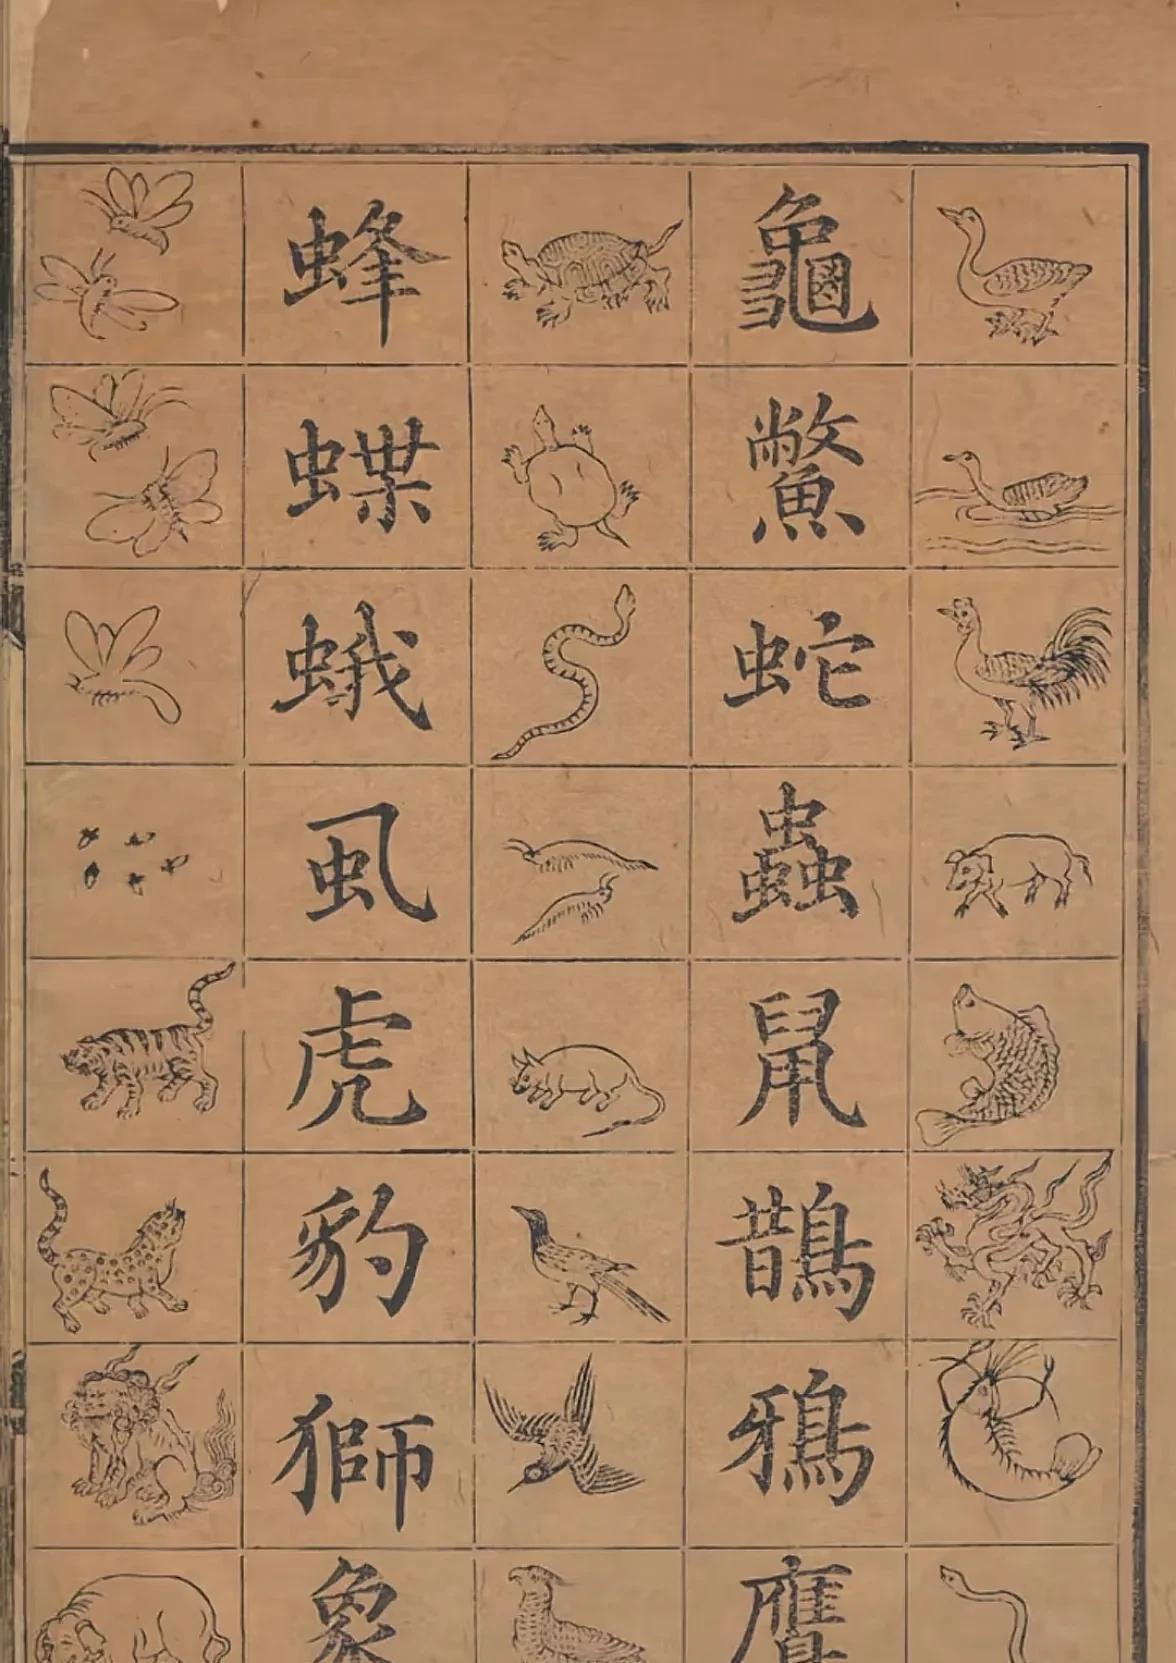 龜
鱉
蛇
蟲
鼠
鵲
鴉
鷹
蜂
蝶
蛾
虱
虎
豹
獅
象